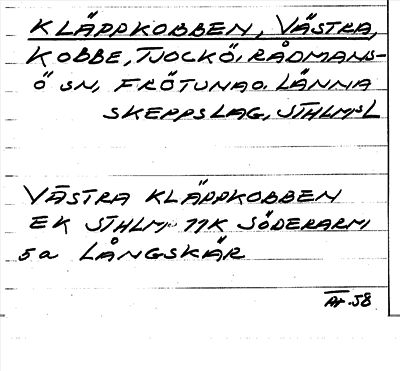 KLÄPPKOBBEN, VÄSTRA,
KOBBE, TJOCKÖ, RÅDMANS-
Ö SN, FRÖTUNA O. LÄNNA
SKEPPSLAG, STHLMSL
VÄSTRA KLÄPPKOBBEN
EK STHLM 11K SÖDERARM
5a LÅNGSKÄR
58